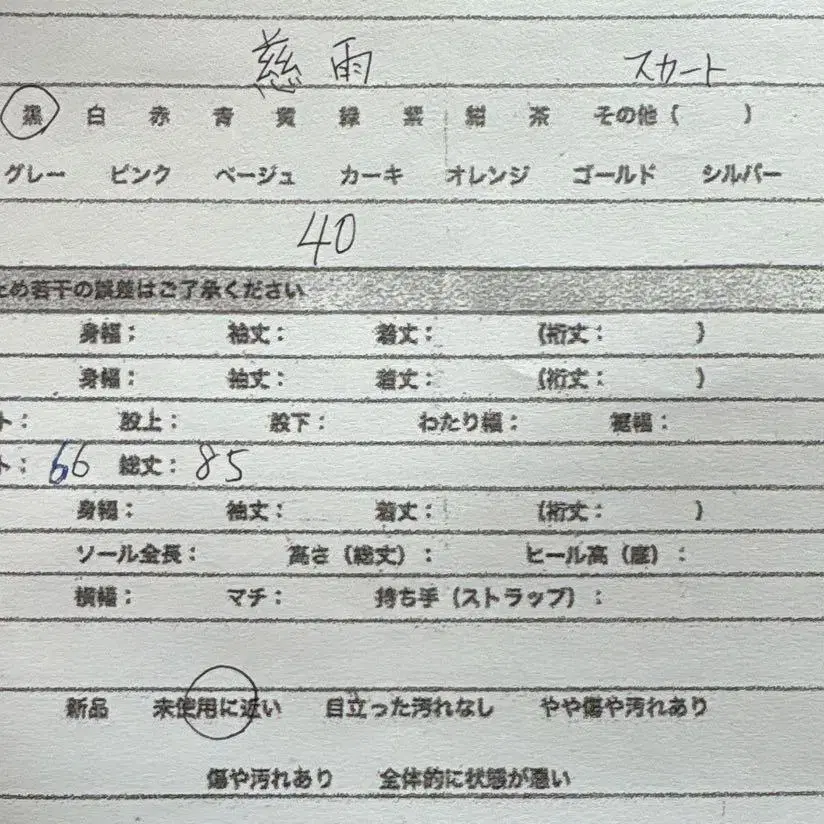 慈雨 スカート
黒 白 赤 青 黄 緑 紫 紺 茶 その他 ( )
グレー ピンク ベージュ カーキ オレンジ ゴールド シルバー
40
ため若干の誤差はご了承ください
身幅： 袖丈： 着丈： (裄丈： )
身幅： 袖丈： 着丈： (裄丈： )
ト： 股上： 股下： わたり幅： 裾幅：
ト： 66 総丈： 85
身幅： 袖丈： 着丈： (裄丈： )
ソール全長： 高さ (総丈) ： ヒール高 (底) ：
横幅： マチ： 持ち手 (ストラップ) ：
新品 未使用に近い 目立った汚れなし やや傷や汚れあり
傷や汚れあり 全体的に状態が悪い